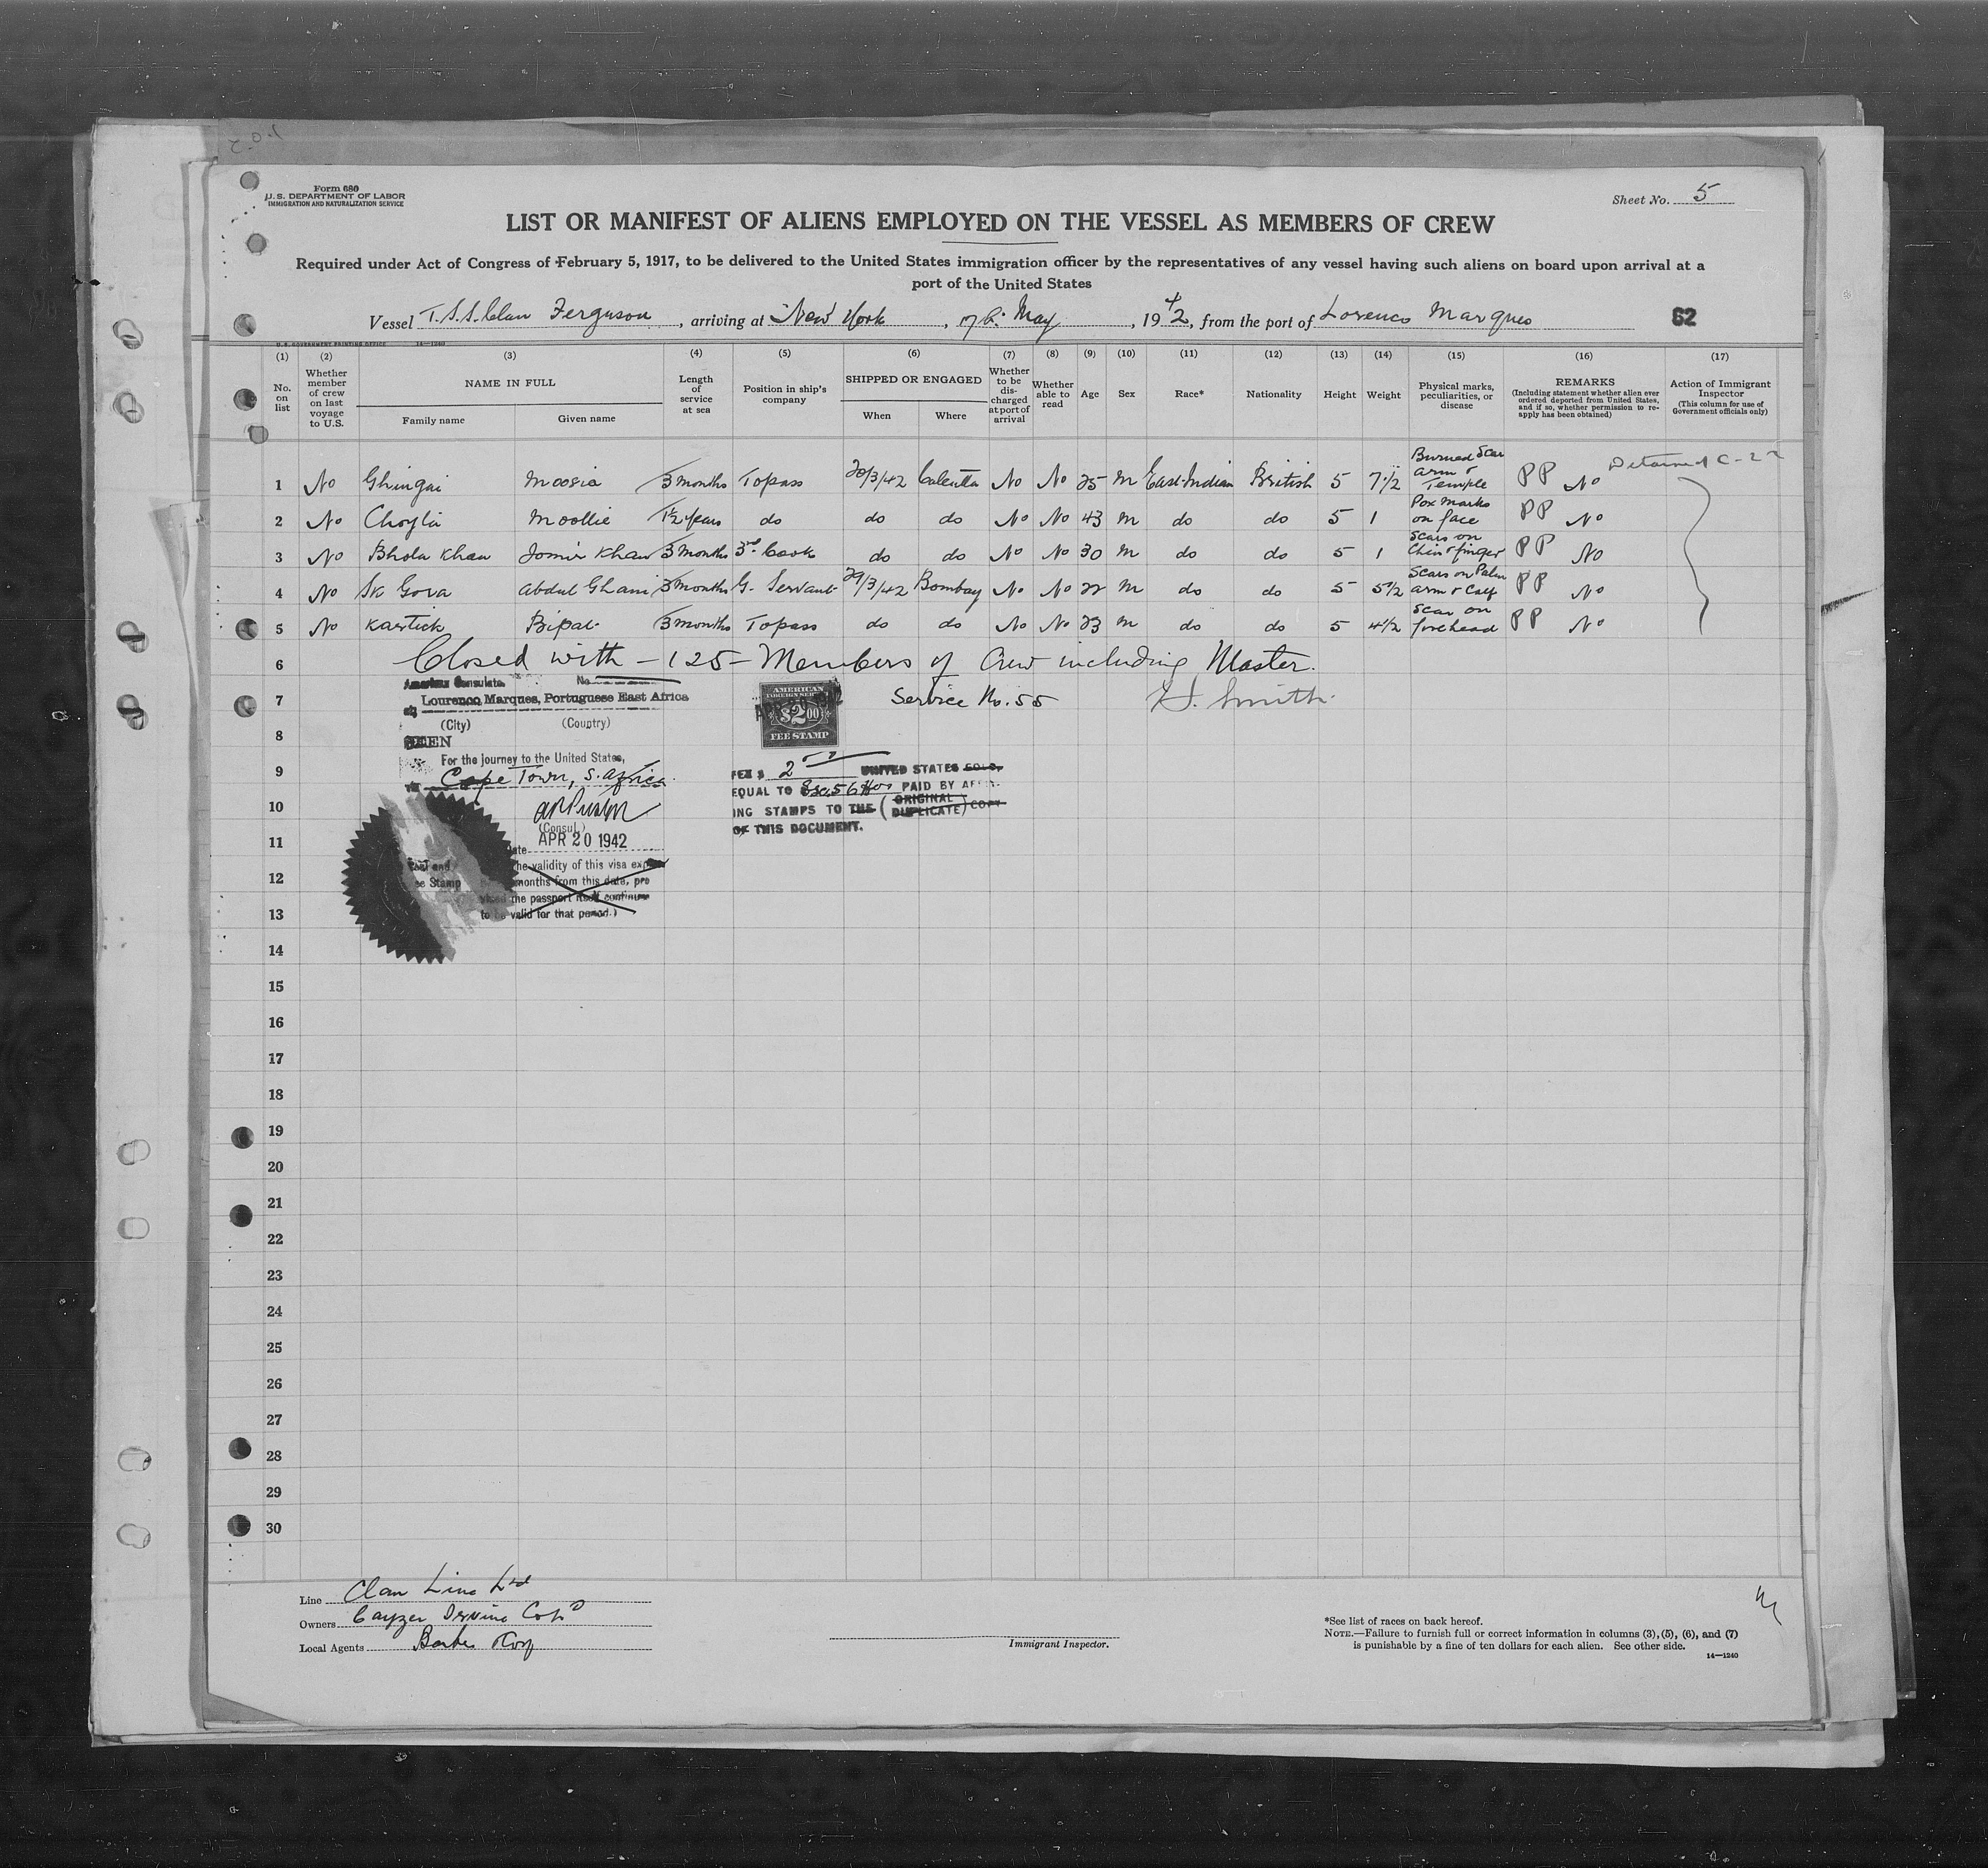 Form 680
U. S. DEPARTMENT OF LABOR
IMMIGRATION AND NATURALIZATION SERVICE
Sheet No. 5
LIST OR MANIFEST OF ALIENS EMPLOYED ON THE VESSEL AS MEMBERS OF CREW
Required under Act of Congress of February 5, 1917, to be delivered to the United States immigration officer by the representatives of any vessel having such aliens on board upon arrival at a
port of the United States
Vessel T.S.S. Clan Ferguson, arriving at New York, May, 1942, from the port of Lorenco Marques 62
U. S. GOVERNMENT PRINTING OFFICE 14—1240
(1) (2) (3) (4) (5) (6) (7) (8) (9) (10) (11) (12) (13) (14) (15) (16) (17)
No. on list
Whether member of crew on last voyage to U.S.
NAME IN FULL
Family name
Given name
Length of service at sea
Position in ship's company
SHIPPED OR ENGAGED
When
Where
Whether to be discharged at port of arrival
Whether able to read
Age
Sex
Race*
Nationality
Height
Weight
Physical marks, peculiarities, or disease
REMARKS
(Including statement whether alien ever ordered deported from United States, and if so, whether permission to reapply has been obtained)
Action of Immigrant Inspector
(This column for use of Government officials only)
1 No Ghingai Moosia 3 months Topass 20/3/42 Calcutta No No 25 M East Indian British 5 7½ Burned Scar arm & Temple PP No Detained C-22
2 No Choyta Moollie 12 years do do do No No 43 M do do 5 1 Pox marks on face PP No
3 No Bhola Khan Jomir Khan 3 months 3rd Cook do do No No 30 M do do 5 1 Scars on Chin & finger PP No
4 No Sk Gora Abdul Ghani 3 months G. Servant 29/3/42 Bombay No No 22 M do do 5 5½ Scars on Palm arm & Calf PP No
5 No Kartick Bipat 3 months Topass do do No No 23 M do do 5 4½ Scar on forehead PP No
6 Closed with -125- Members of Crew including Master.
American Consulate No.
7 Lourenco Marques, Portuguese East Africa
AMERICAN FOREIGN SERVICE $2.00 FEE STAMP
Service No. 55
H. Smith
(City) (Country)
8 SEEN
For the journey to the United States,
9 Cape Town, S. Africa
FEE $ 2 UNITED STATES GOLD,
EQUAL TO Esc. 56 PAID BY AFFIX-
10 ING STAMPS TO THE (ORIGINAL DUPLICATE) COPY
OF THIS DOCUMENT.
(Consul)
11 date APR 20 1942
the validity of this visa expires
12 months from this date, pro
vided the passport itself continues
13 to be valid for that period.)
14
15
16
17
18
19
20
21
22
23
24
25
26
27
28
29
30
Line Clan Line Ltd
Owners Cayzer Irvine Co Ltd
Local Agents Barber
Immigrant Inspector.
*See list of races on back hereof.
NOTE.—Failure to furnish full or correct information in columns (3), (5), (6), and (7)
is punishable by a fine of ten dollars for each alien. See other side.
14—1240